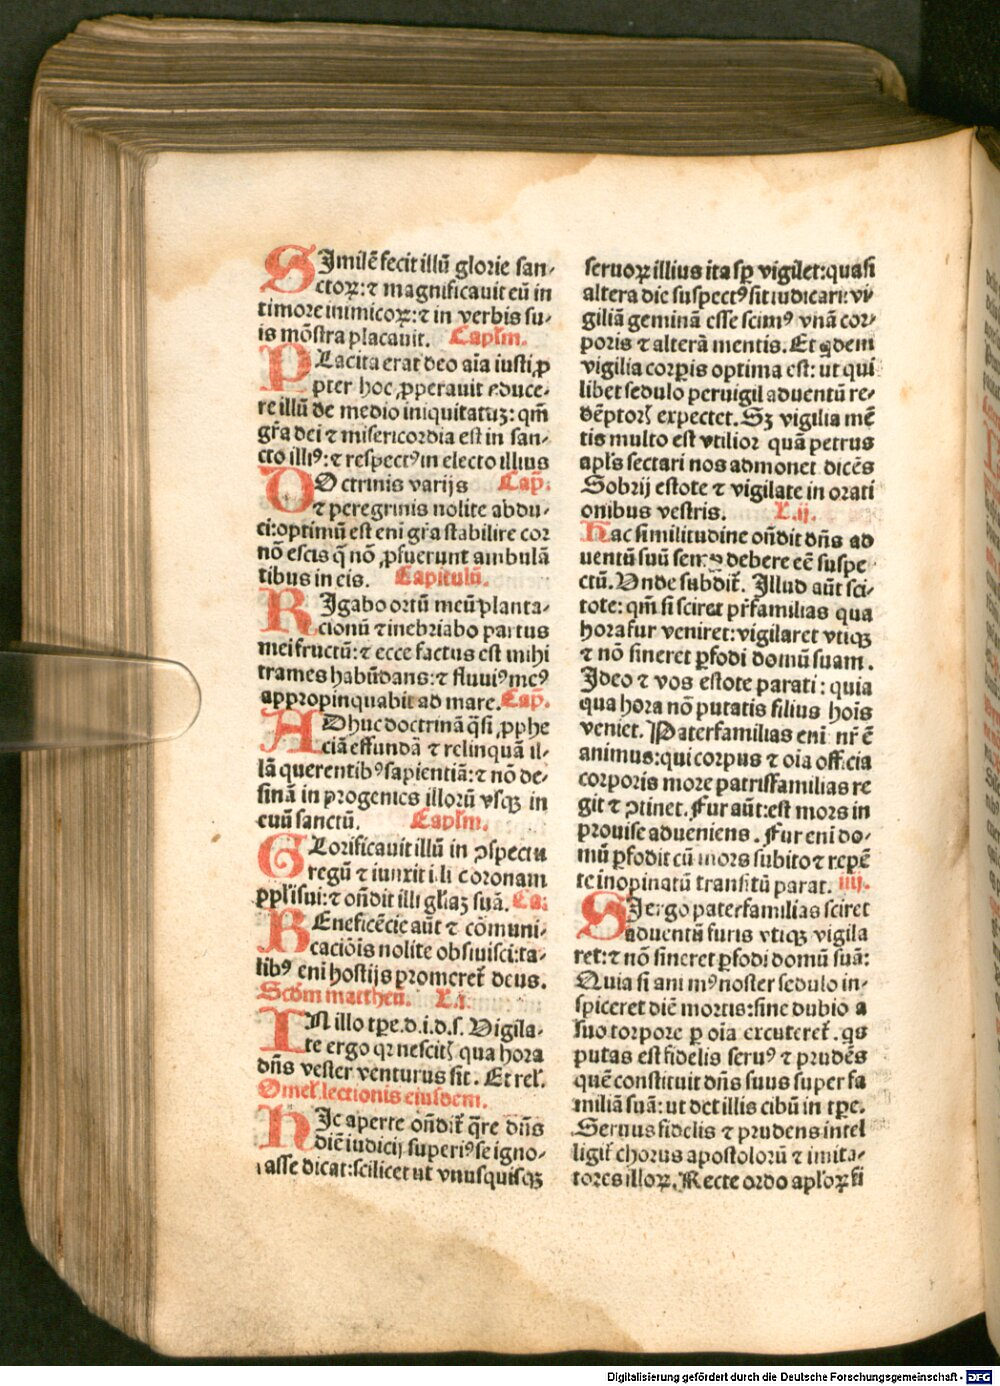 SImilē fecit illū glorie san-
ctoꝝ: ⁊ magnificauit eū in
timore inimicoꝝ: ⁊ in verbis su-
is mōstra placauit. Capľm.
PLacita erat deo aīa iusti ꝓ
pter hoc ꝓperauit educe-
re illū de medio iniquitatuꝫ: qm̄
gr̄a dei ⁊ misericordia est in san-
cto illiꝰ: ⁊ respectꝰ in electo illius
DOctrinis varijs Cap̄.
⁊ peregrinis nolite abdu-
ci: optimū est eni gr̄a stabilire cor
nō escis q̄ nō ꝓfuerunt ambulā
tibus in eis. Capitulū.
RIgabo ortū meū planta-
cionū ⁊ inebriabo partus
mei fructū: ⁊ ecce factus est mihi
trames habūdans: ⁊ fluuiꝰ meꝰ
appropinquabit ad mare. Cap̄.
ADhuc doctrinā q̄si ꝓphe
ciā effundā ⁊ relinquā il-
lā querentibꝰ sapientiā: ⁊ nō de-
sinā in progenies illorū vsqꝫ in
euū sanctū. Capľm.
GLorificauit illū in ꝯspectu
regū ⁊ iunxit illi coronam
ppľi sui: ⁊ oñdit illi gľiaꝫ suā. Ca:
BEneficēcie aūt ⁊ cōmuni-
caciōis nolite obliuisci: ta-
libꝰ eni hostijs promeret̄ deus.
Scďm mattheū. L.i.
IN illo tp̄e. d. i. d. s. Vigila-
te ergo qꝛ nescitꝭ qua hora
dn̄s vester venturus sit. Et reľ.
Omeľ. lectionis eiusdem.
HIc aperte oñdit̄ q̄re dn̄s
diē iudicij superiꝰ se igno-
rasse dicat: scilicet ut vnusquisqꝫ
seruoꝝ illius ita sꝑ vigilet: quasi
altera die suspectꝰ sit iudicari: vi
giliā geminā esse scimꝰ vnā cor-
poris ⁊ alterā mentis. Et qdem
vigilia corꝑis optima est: ut qui
libet sedulo peruigil aduentū re-
dēptorꝭ expectet. Sꝫ vigilia mē
tis multo est vtilior quā petrus
apľs sectari nos admonet dicēs
Sobrij estote ⁊ vigilate in orati
onibus vestris. L.ij.
Hac similitudine oñdit dn̄s ad
uentū suū semꝑ debere eē suspe
ctū. Vnde subdit̄. Illud aūt sci-
tote: qm̄ si sciret pr̄familias qua
hora fur veniret: vigilaret vtiqꝫ
⁊ nō sineret ꝑfodi domū suam.
Ideo ⁊ vos estote parati: quia
qua hora nō putatis filius hoīs
veniet. Paterfamilias eni nr̄ ē
animus: qui corpus ⁊ oīa officia
corporis more patrisfamilias re
git ⁊ ꝯtinet. Fur aūt: est mors in
prouise adueniens. Fur eni do-
mū ꝑfodit cū mors subito ⁊ repē
te inopinatū transitū parat. iij.
SI ergo paterfamilias sciret
aduentū furis vtiqꝫ vigila
ret: ⁊ nō sineret ꝑfodi domū suā:
Quia si animꝰ noster sedulo in-
spiceret diē mortis: sine dubio a
suo torpore ꝑ oīa excuteret̄. qs
putas est fidelis seruꝰ ⁊ prudēs
quē constituit dn̄s suus super fa
miliā suā: ut det illis cibū in tp̄e.
Seruus fidelis ⁊ prudens intel
ligit̄ chorus apostolorū ⁊ imita-
tores illoꝝ. Recte ordo apľoꝝ fi
Digitalisierung gefördert durch die Deutsche Forschungsgemeinschaft - DFG